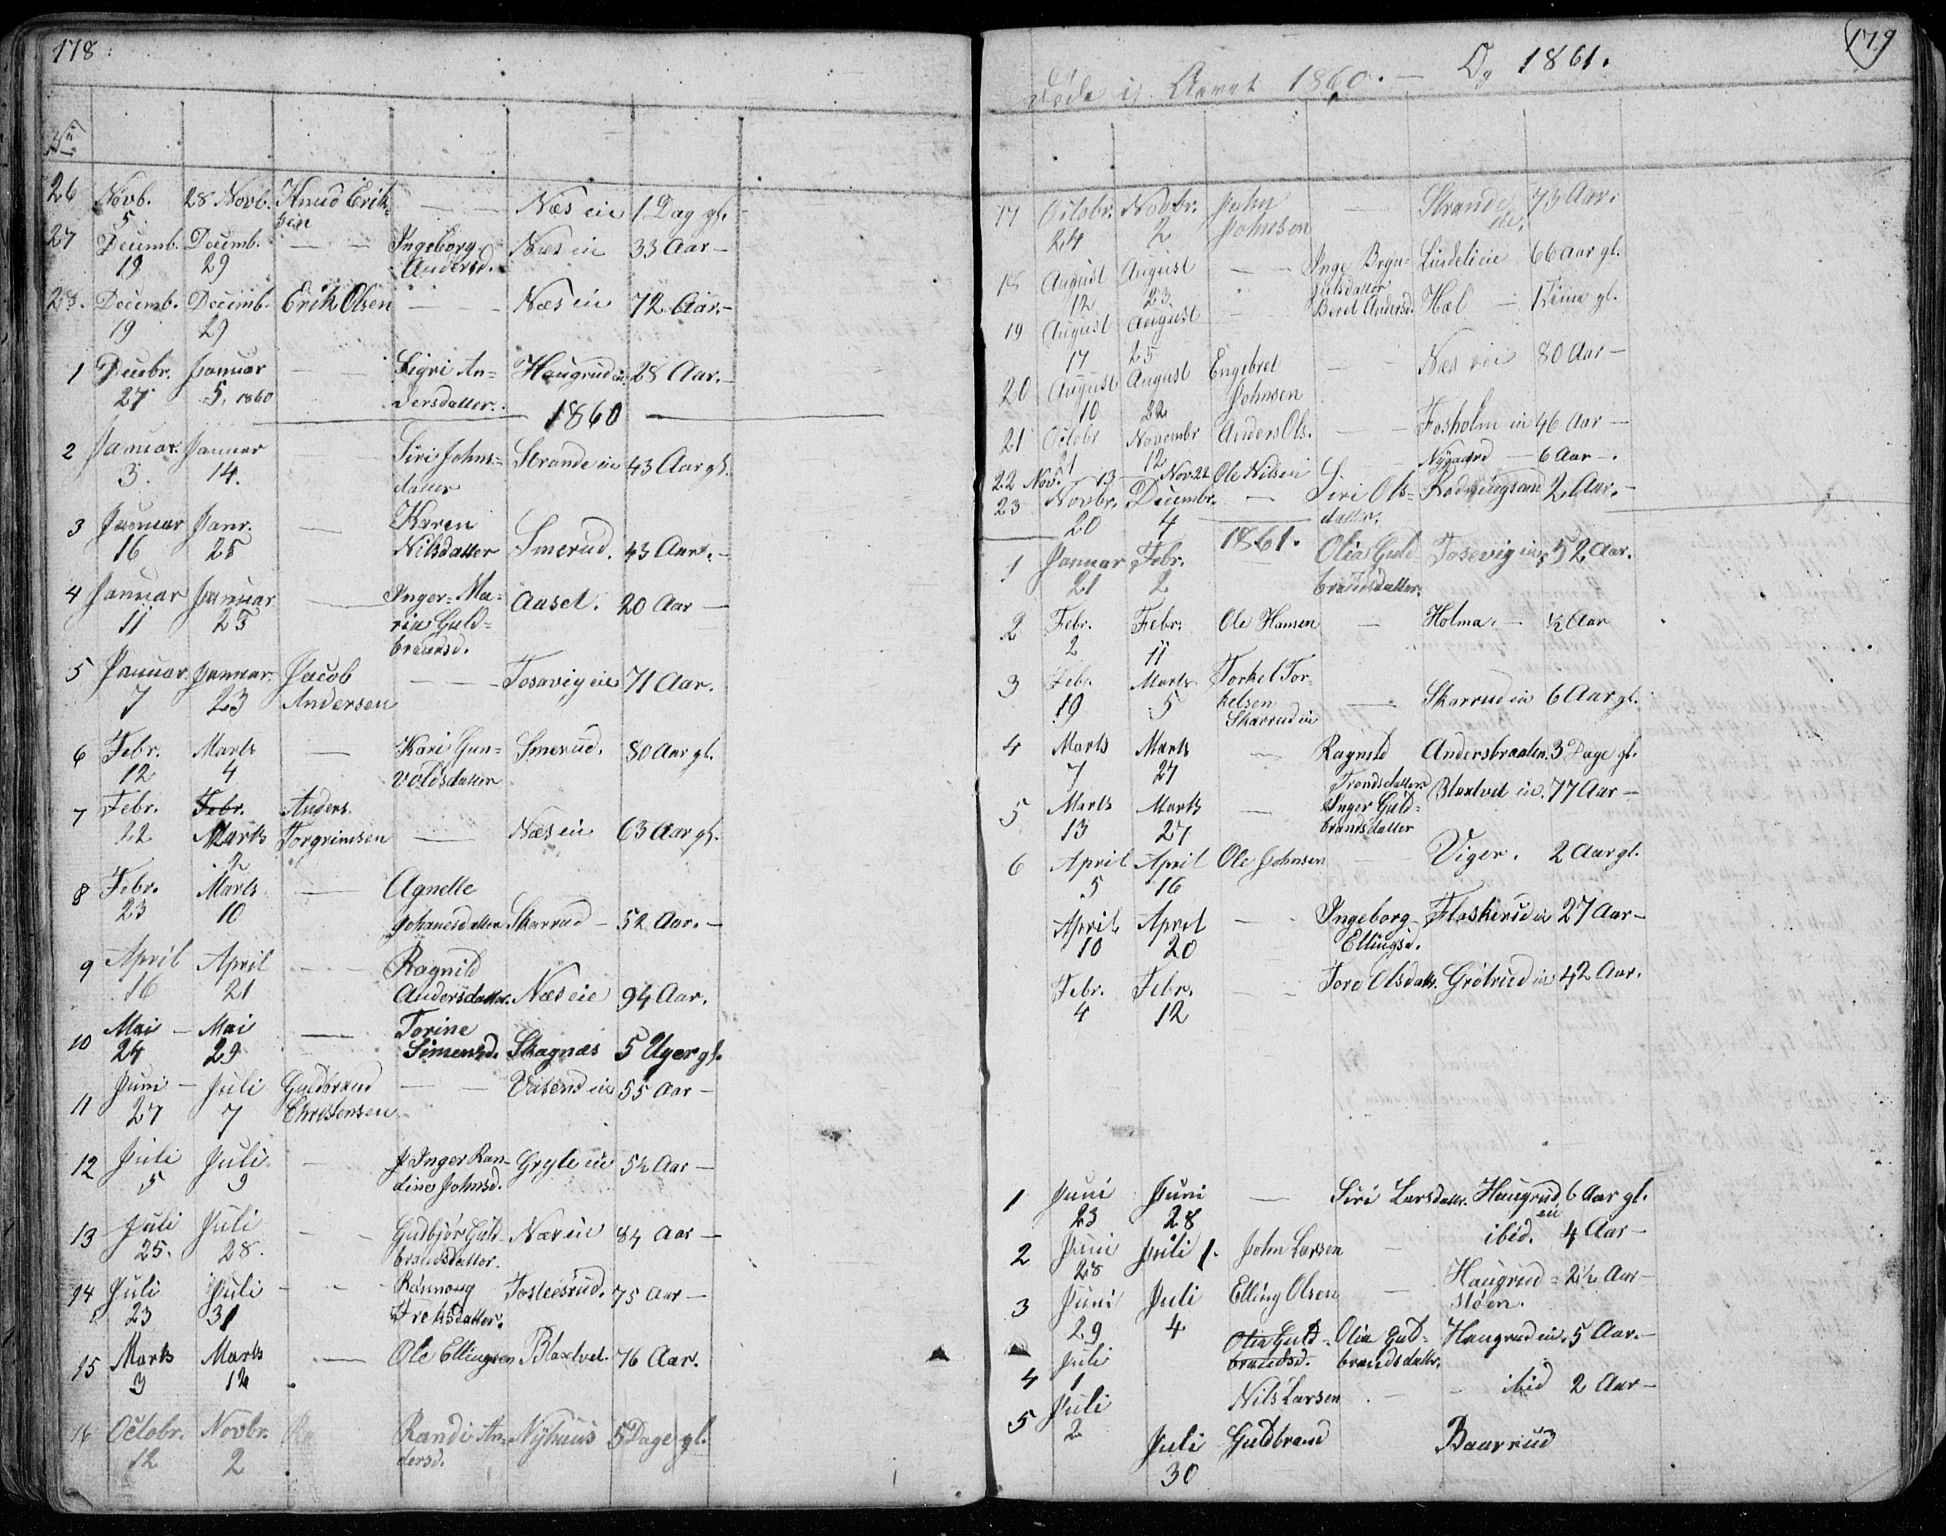 178
No
26 Novb. 28 Novb. Knud Erik= Næs eie 1 Dag gl.
5 sen
27 Decemb. Decemb. Ingeborg Næs eie 33 Aar –
19 29 Andersd.
28. Decemb. Decemb. Erik Olsen Næs eie 72 Aar. –
19 29
1 Decbr. Januar Sigri An= Haugrud ei 28 Aar. –
27 5. 1860 dersdatter.
1860
2 Januar Januar Siri Johns= Strande eie 43 Aar gl.
3. 14. datter
3 Januar Janr. Karen
16 25 Nilsdatter Smerud. 43 Aar. –
4 Januar Januar Inger Ma= Aaset. 20 Aar –
11 25 rie Guld=
brandsd.
5 Januar Januar Jacob Tosevig eie 71 Aar.
7 23 Andersen
6 Febr. Marts Kari Gun= Smerud. 80 Aar gl.
12 4 voldsdatter
7 Febr. Febr. Anders
22 Marts Torgrimsen Næs eie 63 Aar gl.
2
8 Febr. Marts Agnette
23 10 Johanesdatter Skarrud – 52 Aar. –
9 April April Ragnild
16 21 Andersdatter. Næs eie 94 Aar.
10 Mai – Mai Torine
24 29 Simensd. Skagnæs 5 Uger gl.
11 Juni – Juli Guldbrand eie 55 Aar –
27 7 Christensen
12 Juli Juli Inger Ran= Gryte eie 5½ Aar –
5 9 dine Johnsd.
13 Juli Juli Gulbjør Gul= Næs eie 84 Aar –
25. 28. brandsdatter.
14 Juli Juli Rønnoug 75 Aar –
23 31
15 Marts Marts Ole Ellingsen Blaxtvet 76 Aar.
3 12
16 Octobr. Novbr. Randi An= Nyhuus 5 Dage gl.
12 2 dersd.
179
Døde i Aaret 1860. – Og 1861.
17 Octobr. Novbr. John Strande 73 Aar.
24 2 Johnsen eie.
18 August August Inge Lindelieie 66 Aar gl.
12 23
19 August August Beret Andersd. Hæl – 1 Time gl.
17 25
20 August August Engebret Næs eie 80 Aar –
10 22 Johnsen
21 Octobr Novembr Anders Ols. Fosholm eie 46 Aar –
21 12
22 Nov. 13 Nov. 22 Ole Nilsen Nygaard 6 Aar –.
23 Novbr. Decembr. – Siri Ols= 2 Aar. –
20 4 datter.
1861.
1 Januar Febr. Olia Guld= Tosevig eie 52 Aar.
21 2 brandsdatter.
2 Febr. Febr. Ole Hansen – Holma. – ½ Aar
2 11
3 Feb. Marts Torkel Tor=
19 5 kelsen – Skarrud eie 6 Aar gl.
Skarrud eie
4 Marts Marts Ragnild Andersbraaten. 3 Dage gl.
7 27 Trondsdatter
5 Marts Marts – Inger Guld= Blaxtvet eie. 77 Aar –
13 27 brandsdatter
6 April April Ole Johnsen – Viger. 2 Aar gl.
5 16
April April Ingeborg Flaskerud eie 27 Aar –
10 20 Ellingsd.
Febr. Febr. Tore Olsdatr. Grøtrud eie 42 Aar.
4 12
1 Juni Juni – Siri Larsdatr. Haugrud 6 Aar gl.
23 28 eie
2 Juni Juli 1. John Larsen – ibid. 4 Aar –
28
3 Juni Juli Elling Olsen – Haugrud = 2½ Aar –
29 4 støen.
4 Juli Olia Guld= Olia Guld= Haugrud eie. 5 Aar. –
1 brandsd. brandsdatr.
5 Juli Nils Larsen – – ibid 2 Aar –
2
Juli Guldbrand Baarrud
30